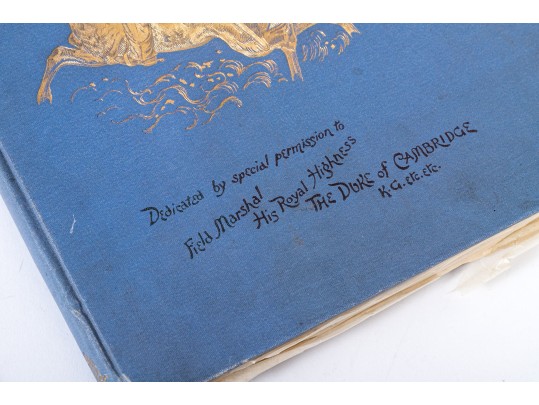 Dedicated by special permission to
Field Marshal
His Royal Highness
THE DUKE of CAMBRIDGE
K.G. etc. etc.